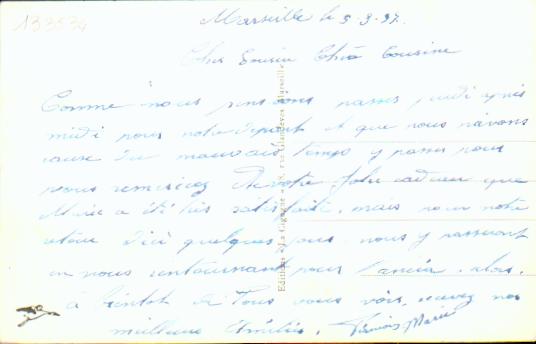 133534
Marseille le 5-3-37.
Cher Cousin Chère Cousine
Comme nous pensions passer jeudi après
midi pour notre départ et que nous n'avons
cause du mauvais temps y passer nous
vous remercier De votre Joli cadeau que
Marie a été très satisfaite, mais pour notre
retour d'ici quelques jours nous y passeront
en nous retournant pour alors,
à bientôt de Tous vous voir, recevez nos
meilleures Amitiés, Marie
Editions "La Cigogne" Marseille